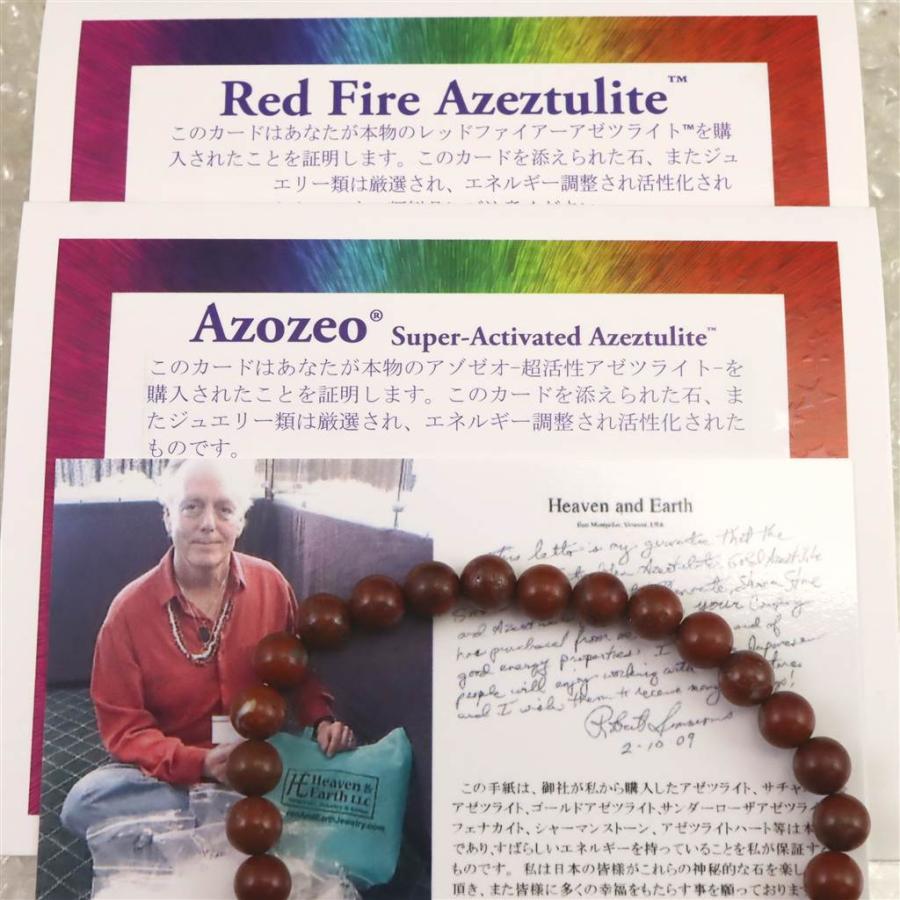 Red Fire Azeztulite™
このカードはあなたが本物のレッドファイアーアゼツライト™を購
入されたことを証明します。このカードを添えられた石、またジュ
エリー類は厳選され、エネルギー調整され活性化され
Azozeo® Super-Activated Azeztulite™
このカードはあなたが本物のアゾゼオ-超活性アゼツライト-を
購入されたことを証明します。このカードを添えられた石、ま
たジュエリー類は厳選され、エネルギー調整され活性化された
ものです。
Heaven and Earth
East Montpelier, Vermont, USA
letter is my guarantee that the
Azeztulite, Gold Azeztulite
your Company
and
has purchased from
good energy properties. I Japanese
people will enjoy working with
and I wish them to receive many
Robert Simmons
2-10 09
Heaven &
Earth LLC
この手紙は、御社が私から購入したアゼツライト、サチャ
アゼツライト、ゴールドアゼツライト、サンダーローザアゼツライ
フェナカイト、シャーマンストーン、アゼツライトハート等は本
であり、すばらしいエネルギーを持っていることを私が保証す
ものです。 私は日本の皆様がこれらの神秘的な石を楽し
頂き、また皆様に多くの幸福をもたらす事を願っておりま